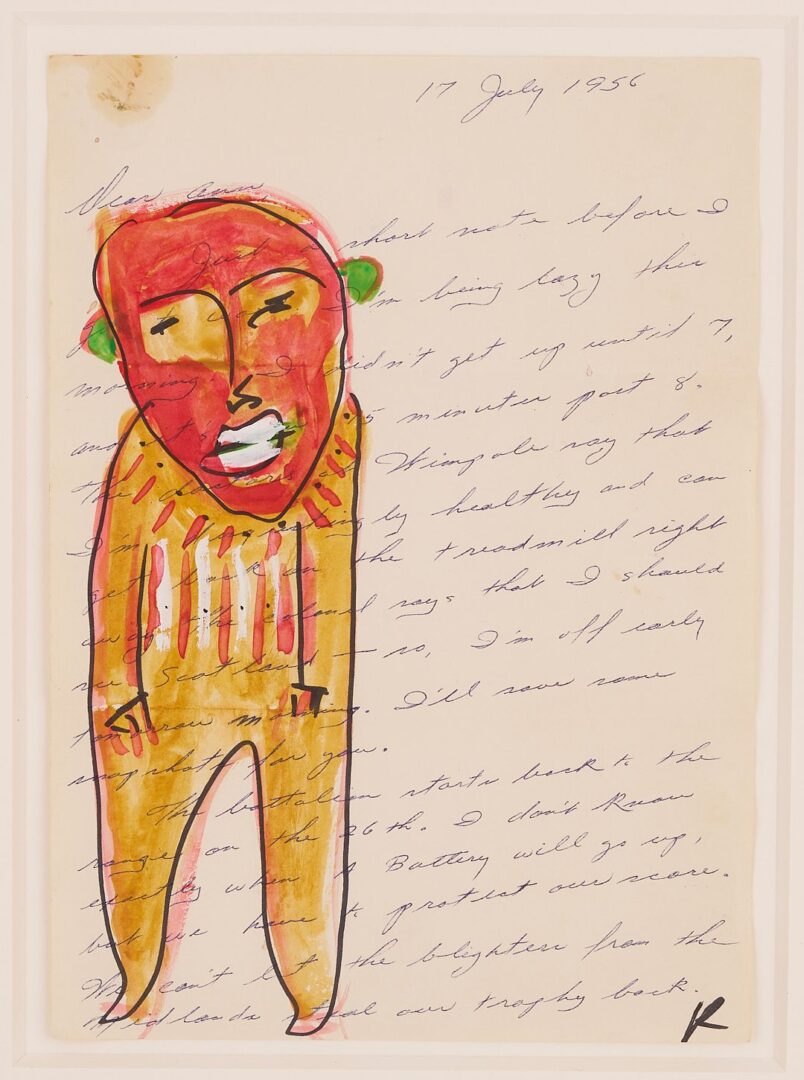 17 July 1956
Dear Ann,
Just a short note before I
I'm being lazy this
morning. I didn't get up until 7,
and it's 15 minutes past 8.
The doctors at Wimpole say that
I'm disgustingly healthy and can
get back on the treadmill right
away. The colonel says that I should
see Scotland — so, I'm off early
tomorrow morning. I'll save some
snapshots for you.
The battalion starts back to the
range on the 26th. I don't know
exactly when A Battery will go up,
but we have to protect our score.
We can't let the blighters from the
Midlands steal our trophy back.
K